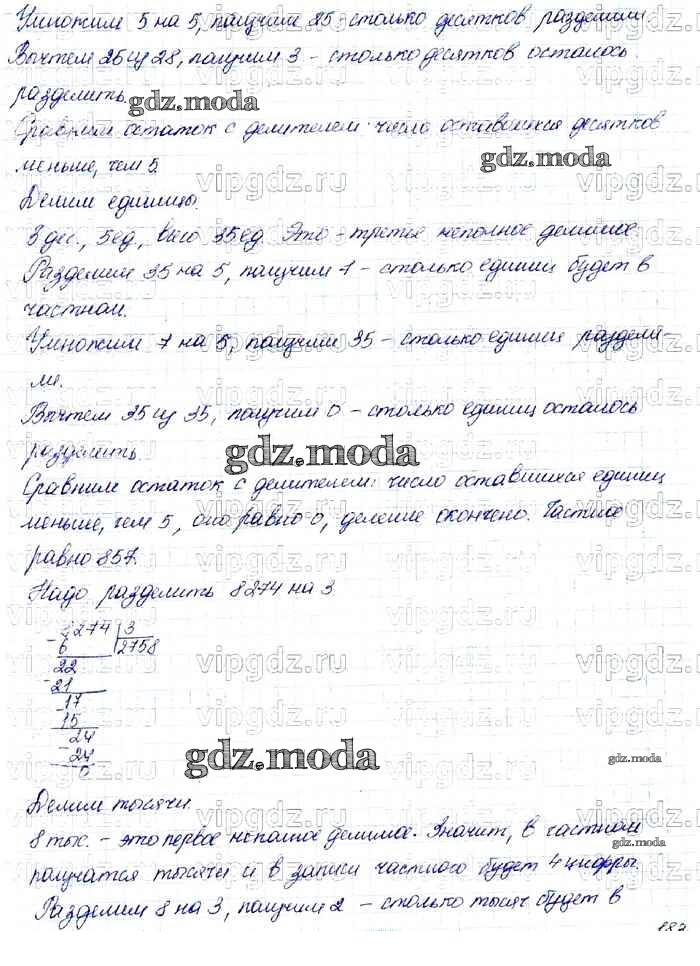 Умножим 5 на 5, получим 25 - столько десятков разделили
Вычтем 25 из 28, получим 3 - столько десятков осталось
разделить.
gdz.moda
Сравним остаток с делителем: число оставшихся десятков
gdz.moda
меньше, чем 5.
vipgdz.ru vipgdz.ru vipgdz.ru vipgdz.ru
Делим единицы.
3 дес., 5 ед., всего 35 ед. Это - третье неполное делимое.
Разделим 35 на 5, получим 7 - столько единиц будет в
частном.
Умножим 7 на 5, получим 35 - столько единиц раздели
ли.
Вычтем 35 из 35, получим 0 - столько единиц осталось
разделить.
gdz.moda
Сравним остаток с делителем: число оставшихся единиц
меньше, чем 5, оно равно 0, деление окончено. Частное
равно 857.
Надо разделить 8274 на 3
8274 3
6 2758
22
21
17
15
24
24
0
gdz.moda
gdz.moda
Делим тысячи.
8 тыс. - это первое неполное делимое. Значит, в частном
получатся тысячи и в записи частного будет 4 цифры.
Разделим 8 на 3, получим 2 - столько тысяч будет в